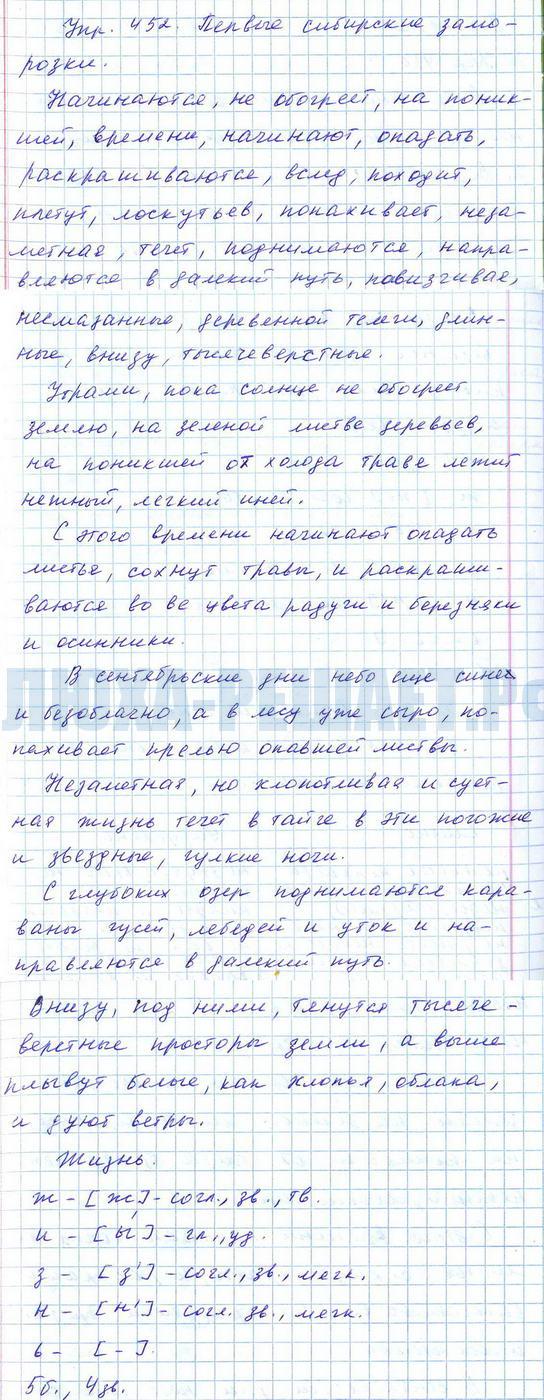 Упр. 452. Первые сибирские замо-
розки.
Начинаются, не обогреет, на поник-
шей, времени, начинают, опадать,
раскрашиваются, вслед, походит,
плетут, лоскутьев, попахивает, неза-
метная, течет, поднимаются, напра-
вляются в далекий путь, повизгивая,
несмазанные, деревенной телеги, длин-
ные, внизу, тысячеверстные.
Утрами, пока солнце не обогреет
землю, на зеленой листве деревьев,
на поникшей от холода траве лежит
нежный, легкий иней.
С этого времени начинают опадать
листья, сохнут травы, и раскраши-
ваются во все цвета радуги и березняки
и осинники.
В сентябрьские дни небо еще синее
и безоблачно, а в лесу уже сыро, по-
пахивает прелью опавшей листвы.
Незаметная, но хлопотливая и сует-
ная жизнь течет в тайге в эти погожие
и звездные, гулкие ночи.
С глубоких озер поднимаются кара-
ваны гусей, лебедей и уток и на-
правляются в далекий путь.
Внизу, под ними, тянутся тысяче-
верстные просторы земли, а выше
плывут белые, как хлопья, облака,
и дуют ветры.
Жизнь.
ж - [ж] - согл., зв., тв.
и - [ы́] - гл., уд.
з - [з'] - согл., зв., мягк.
н - [н'] - согл. зв., мягк.
ь - [-]
5б., 4зв.